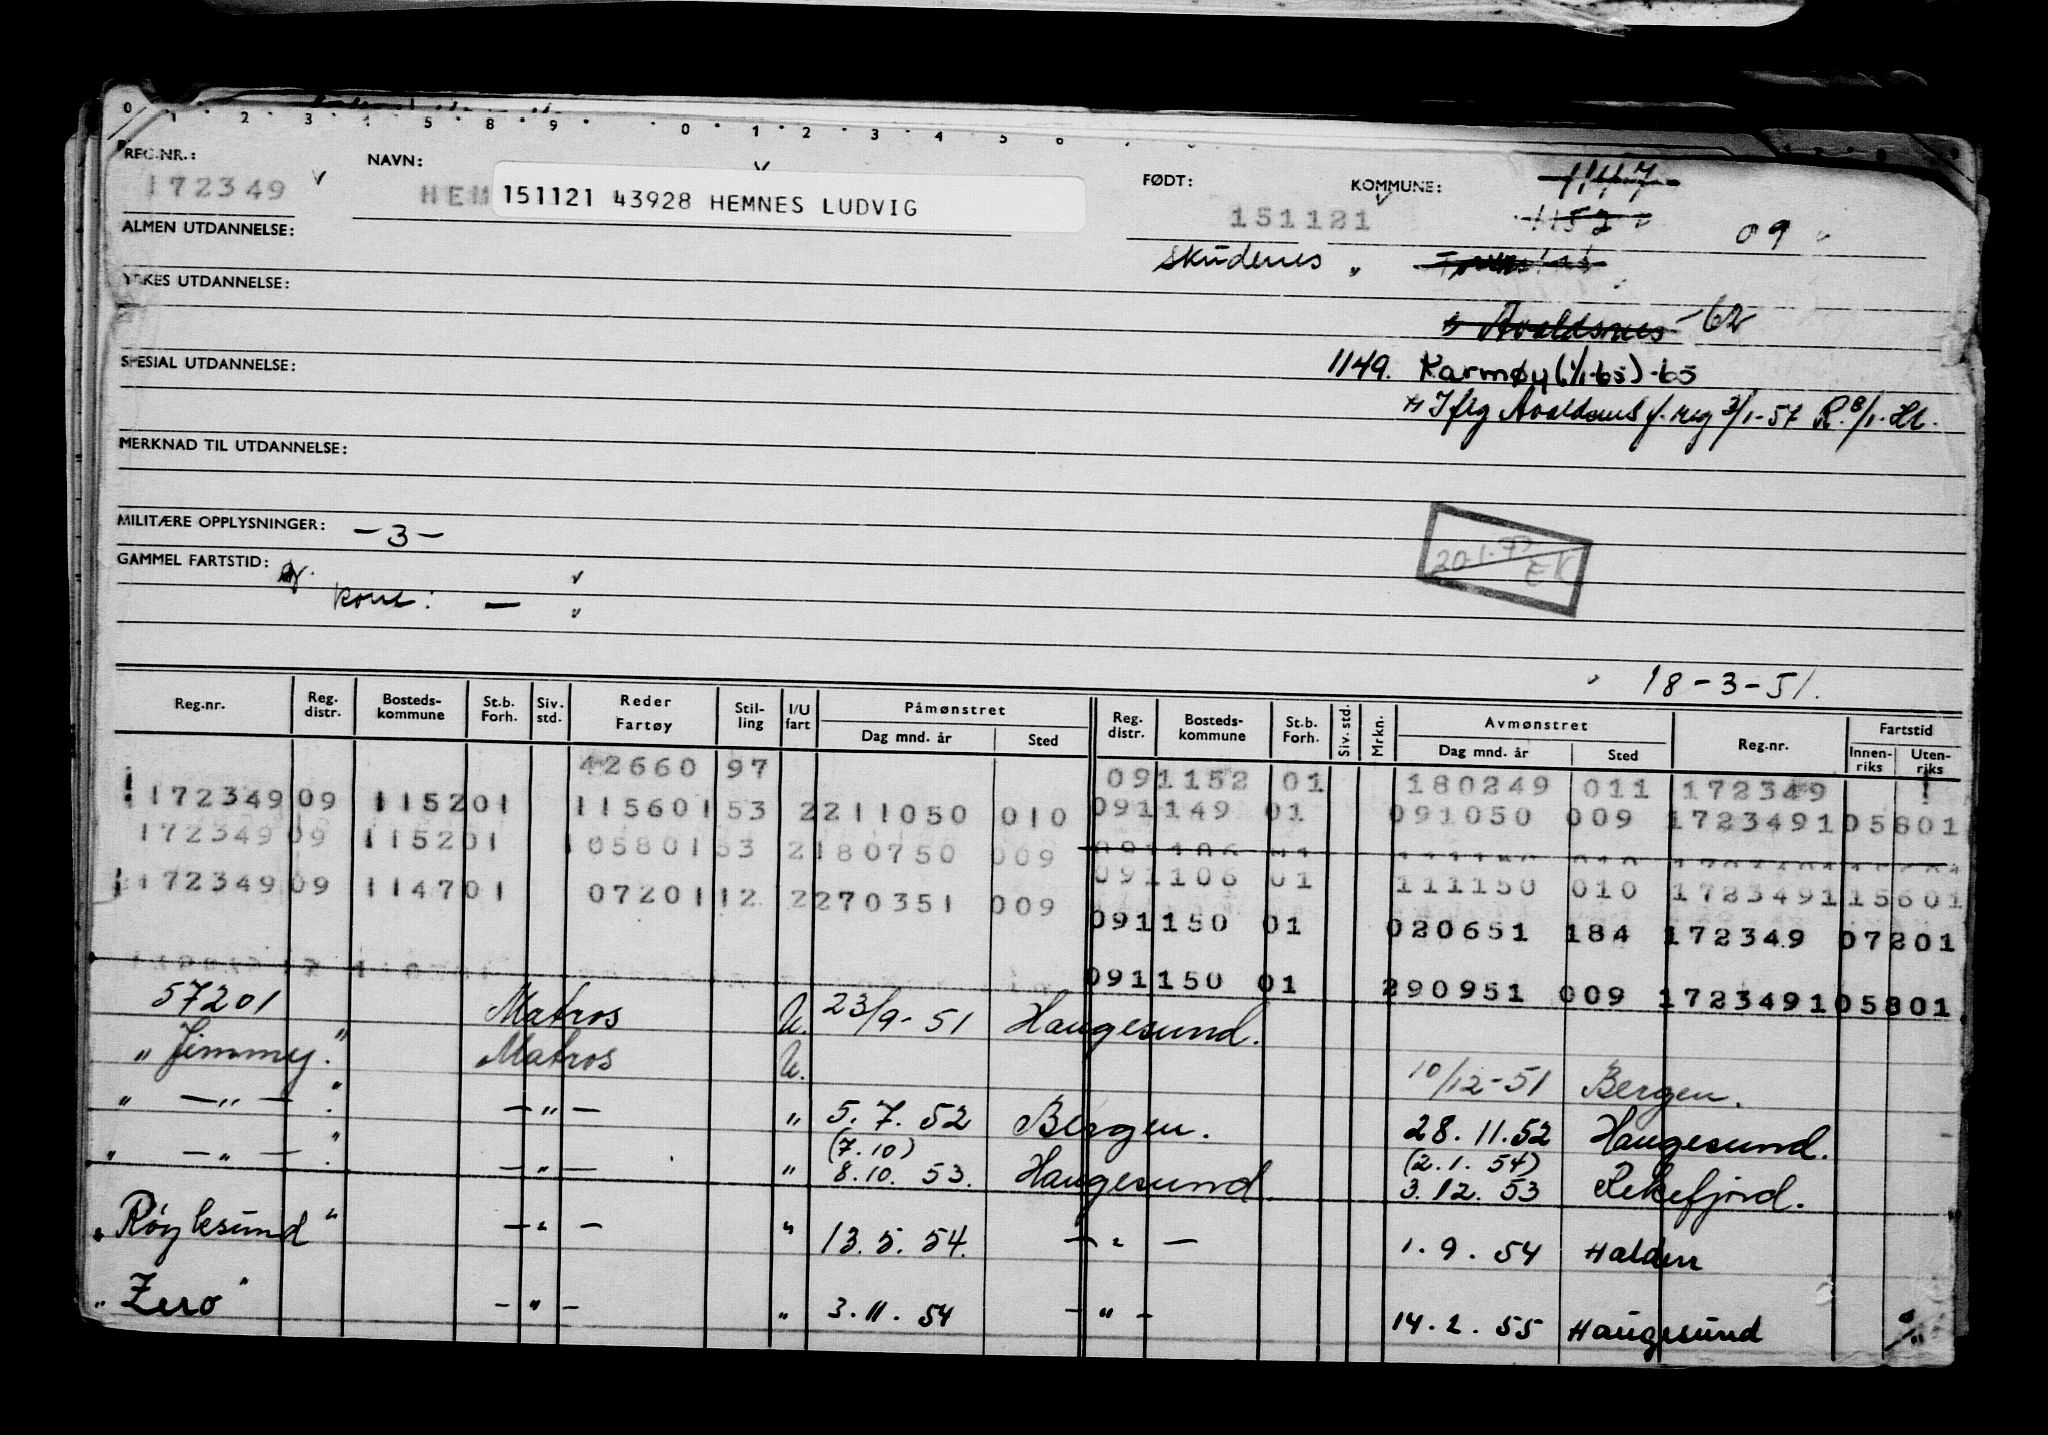 REG.NR.:
172349
NAVN:
HEM 151121 43928 HEMNES LUDVIG
FØDT:
151121
Skudenes "
KOMMUNE:
1152
09
ALMEN UTDANNELSE:
YRKES UTDANNELSE:
" Avaldsnes -62
SPESIAL UTDANNELSE:
1149. Karmøy (1/1-65)-65
Iflg Avaldsnes f. reg 3/1-57 R. 8/1. Ht.
MERKNAD TIL UTDANNELSE:
MILITÆRE OPPLYSNINGER: -3-
GAMMEL FARTSTID:
Kone: —
18-3-51.
Reg.nr. Reg. distr. Bosteds-kommune St.b. Forh. Siv. std. Reder Fartøy Stil-ling I/U fart Påmønstret Dag mnd. år Sted Reg. distr. Bosteds-kommune St.b. Forh. Siv. std. Mrkn. Avmønstret Dag mnd. år Sted Reg.nr. Fartstid Innen-riks Uten-riks
42660 97 091152 01 180249 011 172349 !
! 172349 09 115201 115601 53 2211050 010 091149 01 091050 009 172349105801
172349 09 115201 105801 53 2180750 009
091106 01 111150 010 172349115601
! 172349 09 114701 07201 12 2270351 009
091150 01 020651 184 172349 07201
091150 01 290951 009 172349105801
57201 Matros U. 23/9-51 Haugesund.
" Jimmy." Matros U. 10/12-51 Bergen.
" —"— ." —"— " 5.7.52 Bergen. 28.11.52 Haugesund.
(7.10) (2.1.54)
" —"— ." —"— " 8.10.53. Haugesund. 3.12.53 Rekefjord.
" Røyksund" —"— " 13.5.54. —"— 1.9.54 Halden
" Zero" —"— " 3.11.54 —"— 14.2.55 Haugesund